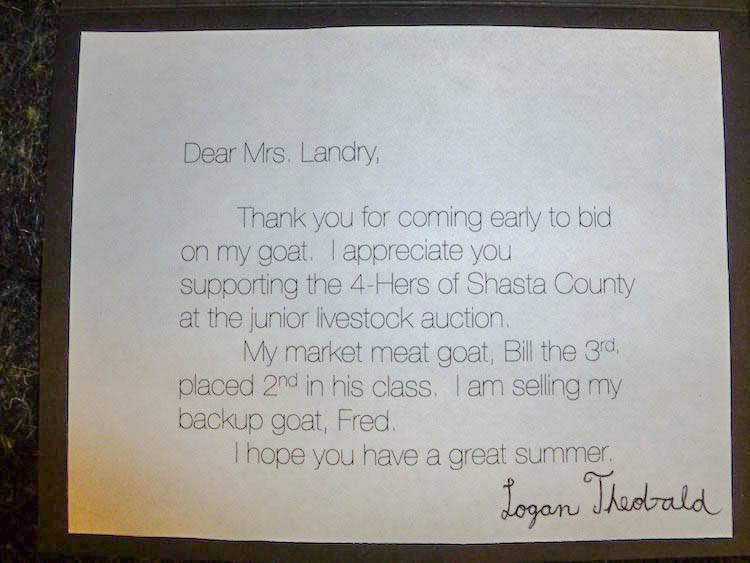 Dear Mrs. Landry,
Thank you for coming early to bid
on my goat. I appreciate you
supporting the 4-Hers of Shasta County
at the junior livestock auction.
My market meat goat, Bill the 3rd,
placed 2nd in his class. I am selling my
backup goat, Fred.
I hope you have a great summer.
Logan Theobald